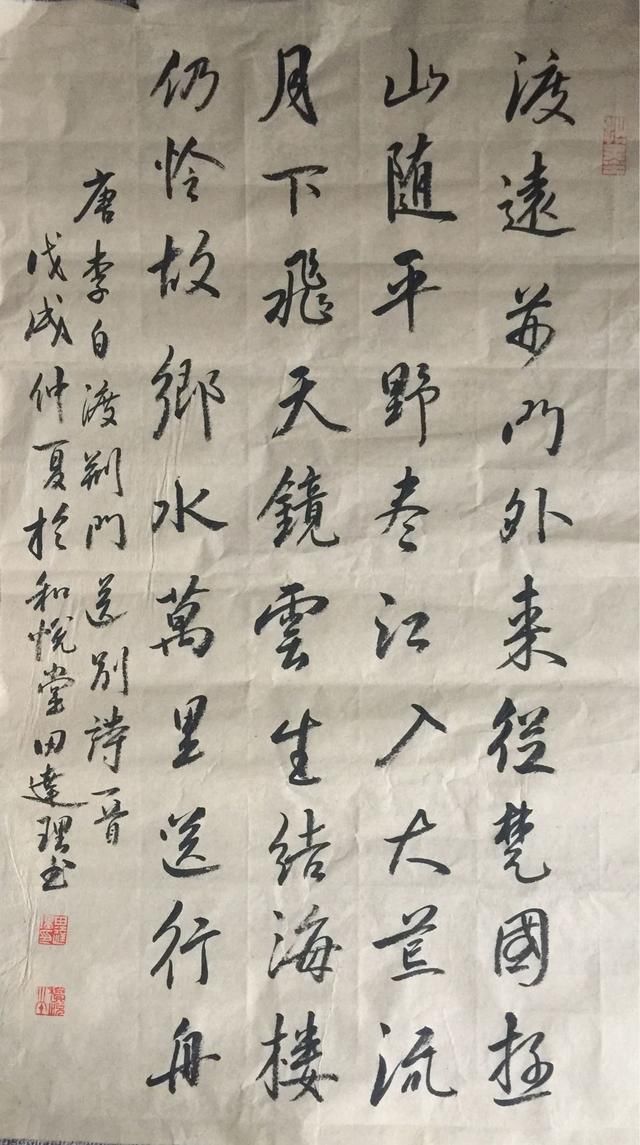 渡遠荆門外来從楚國遊
山随平野尽江入大荒流
月下飛天鏡雲生結海楼
仍怜故鄉水萬里送行舟
唐李白渡荆門送别詩一首
戊戌仲夏於和悦堂田達理书